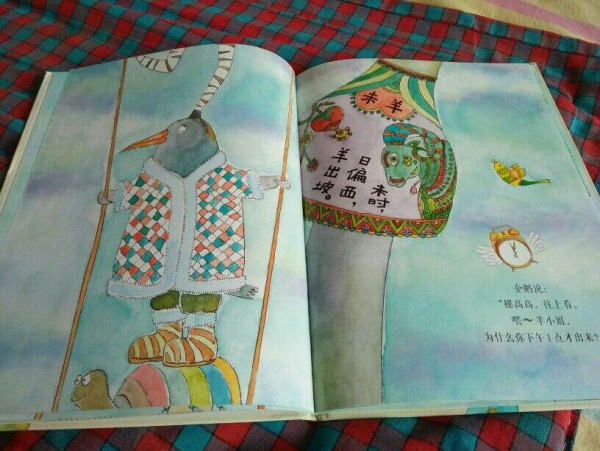 未羊
未时，
日偏西，
羊出坡。
企鹅说：
“摇高高，往上看。
喂～羊小姐，
为什么你下午1点才出来？